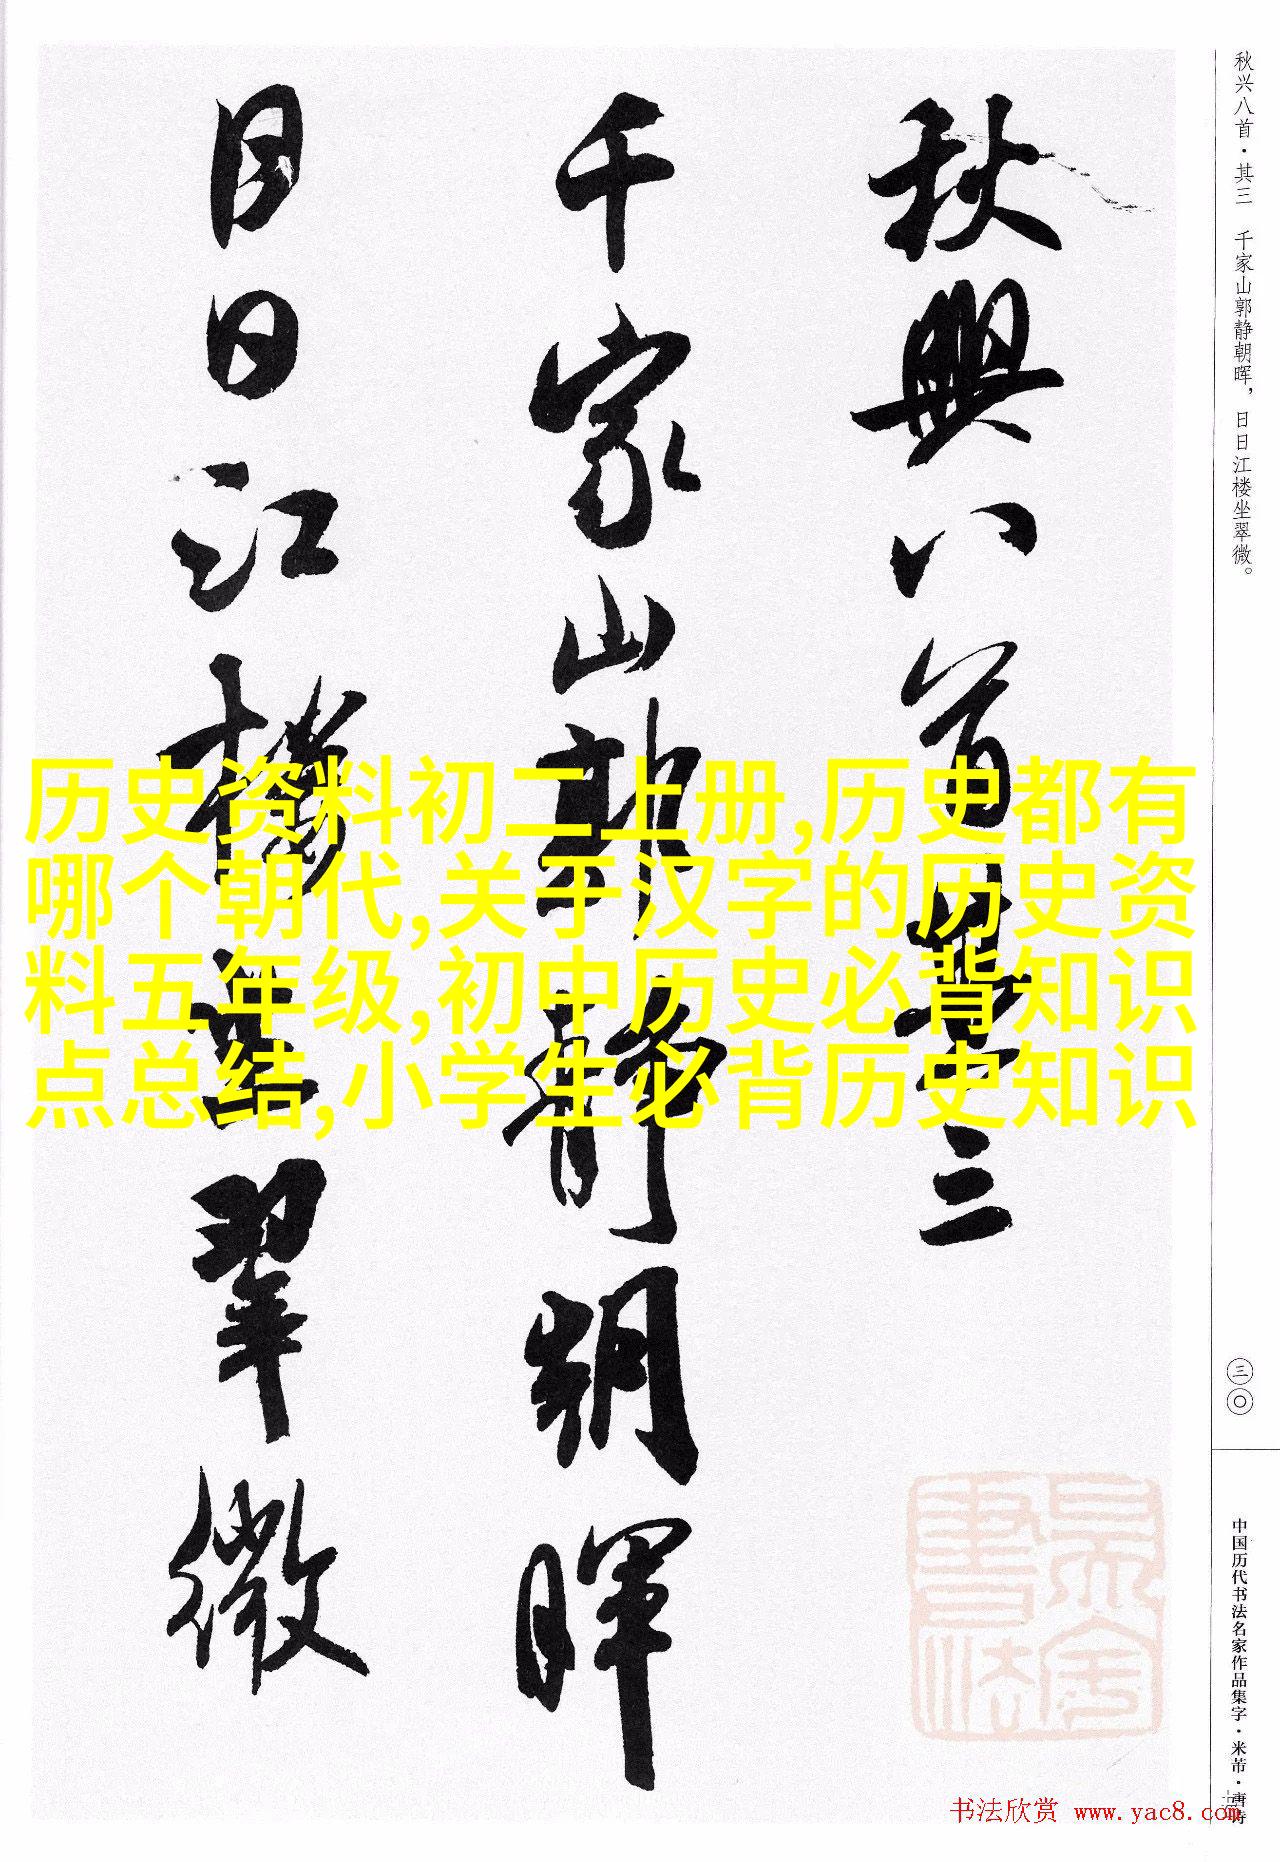 秋兴八首·其三 千家山郭静朝晖，日日江楼坐翠微。
秋興八首其三
千家山郭靜朝暉
日日江樓坐翠微
历史资料初二上册,历史都有
哪个朝代,关于汉字的历史资
料五年级,初中历史必背知识
点总结,小学生必背历史知识
三〇
中国历代书法名家作品集字·米芾·唐诗
书法欣赏 www.yac8.com